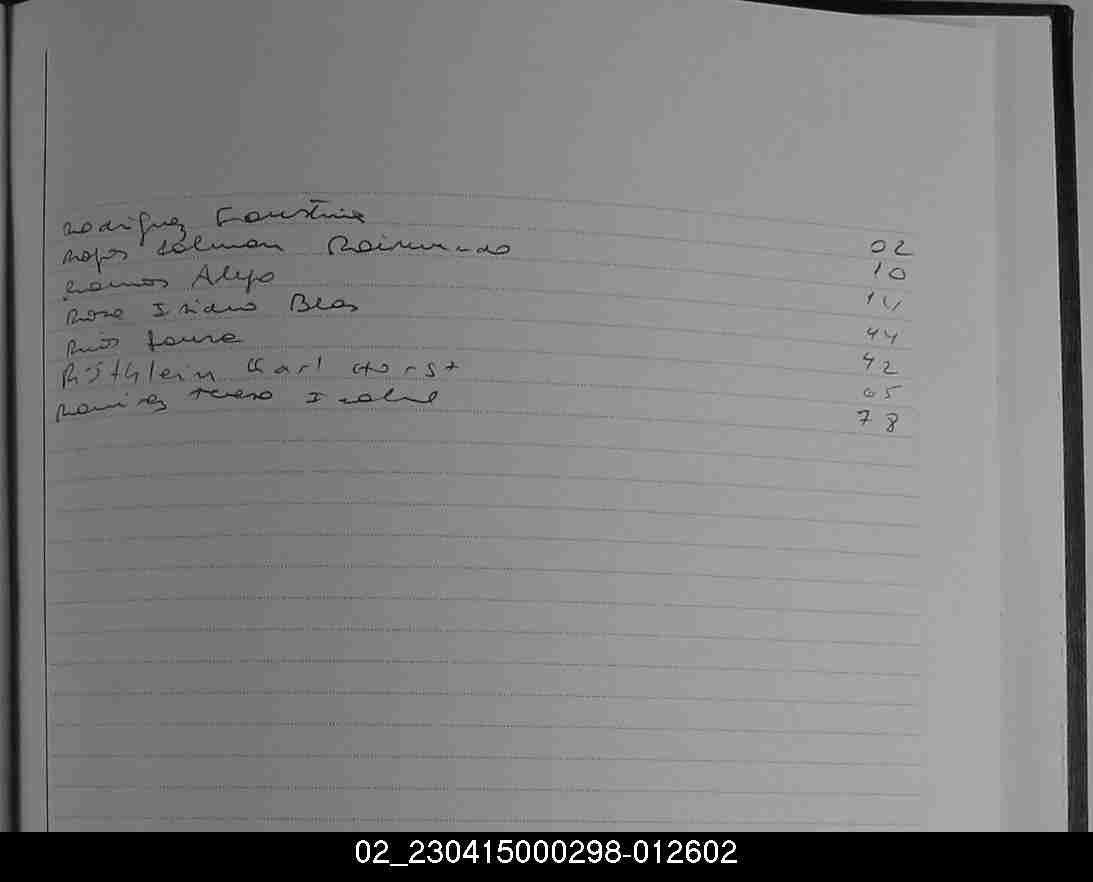 Rodriguez Faustine 02
Rojas Salman Raimundo 10
Ramos Alejo 14
Rosa Isidro Blas 44
Ruiz Laura 42
Röthlein Karl Horst 65
Ramirez Teresa Isabel 78
02_230415000298-012602